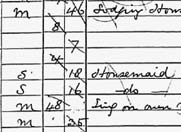 m 46 Lodging Hou
8
7
4
S. 18 Housemaid
S 16 do
m 48 Living on own
m 25